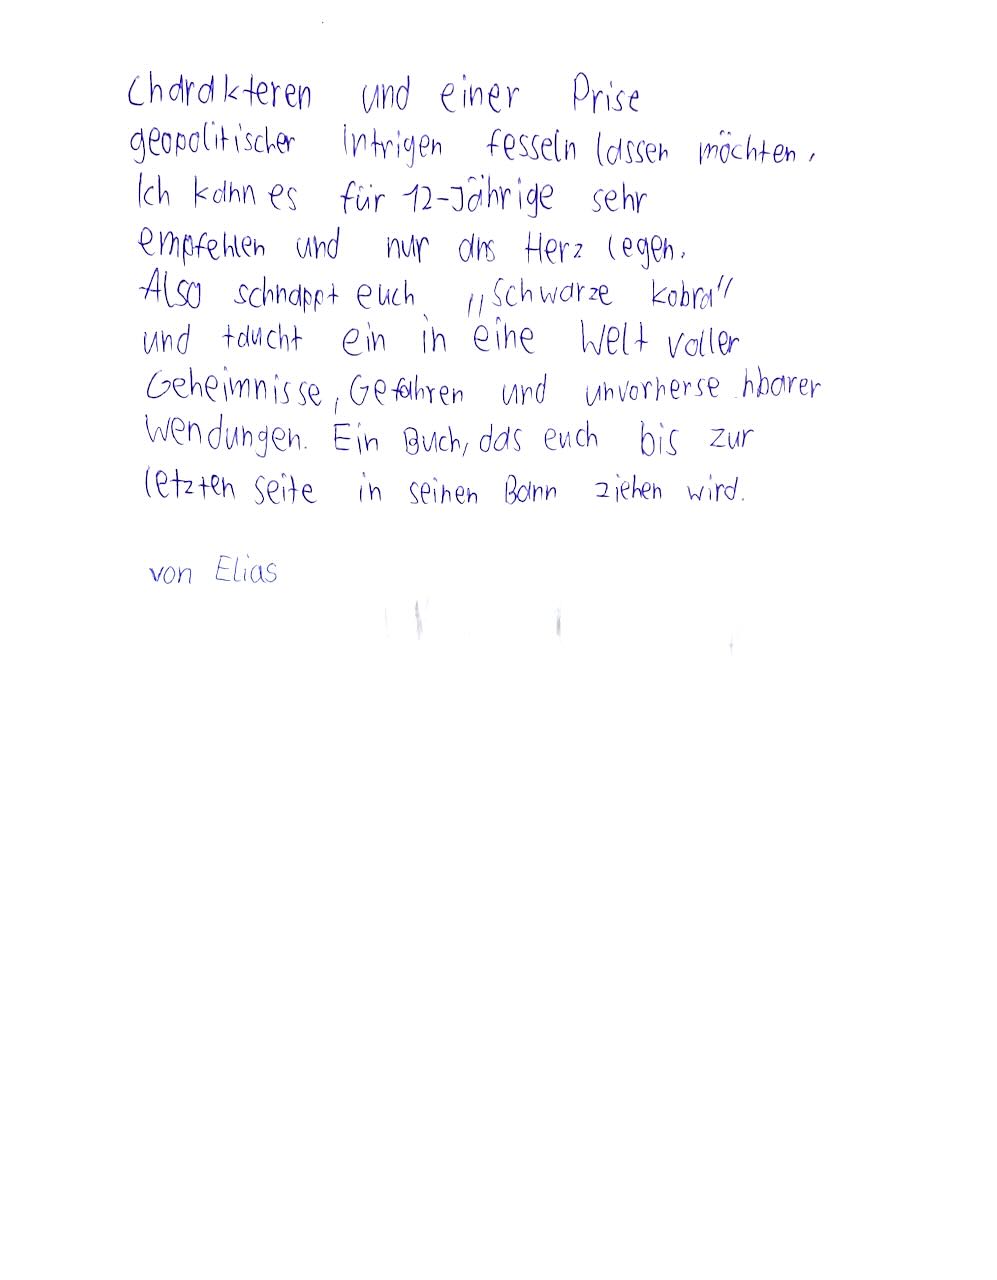 Charakteren und einer Prise
geopolitischer Intrigen fesseln lassen möchten.
Ich kann es für 12-Jährige sehr
empfehlen und nur ans Herz legen.
Also schnappt euch „Schwarze Kobra"
und taucht ein in eine Welt voller
Geheimnisse, Gefahren und unvorhersehbarer
Wendungen. Ein Buch, das euch bis zur
letzten Seite in seinen Bann ziehen wird.
von Elias